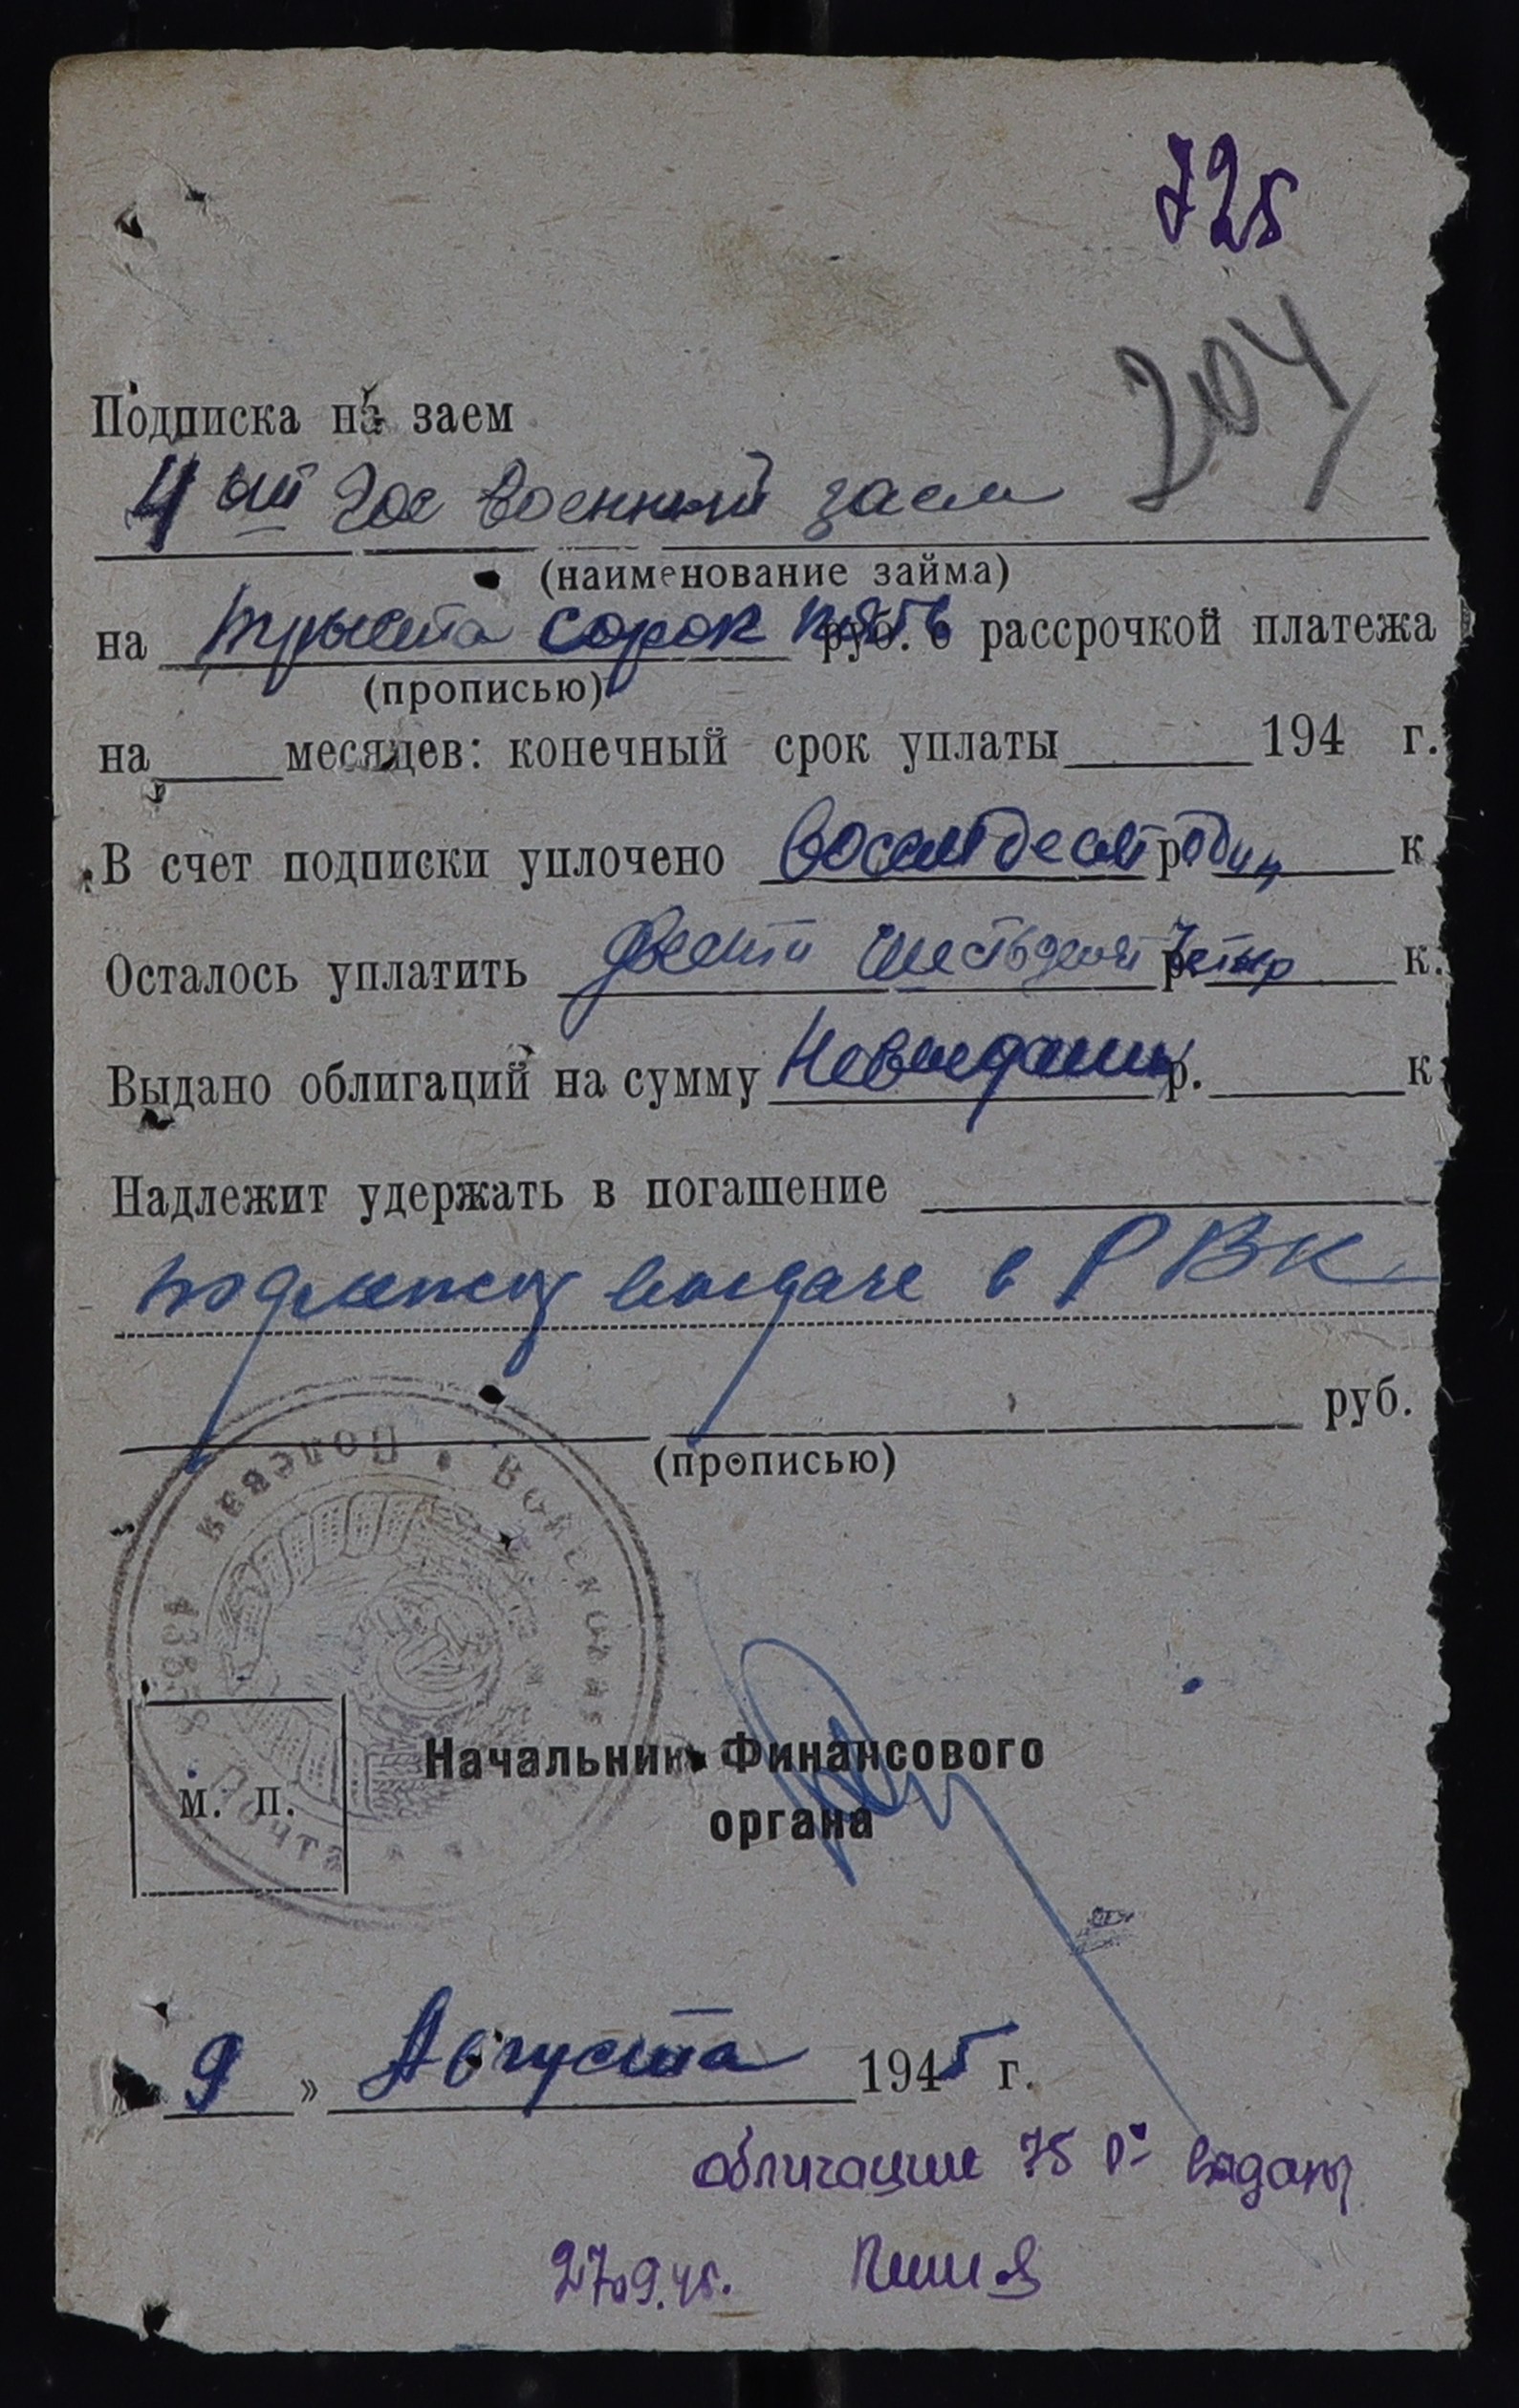 725
204
Подписка на заем
4 ый Гос военный заем
(наименование займа)
на трыста сорок пять руб. с рассрочкой платежа
(прописью)
на месяцев: конечный срок уплаты 194 г.
В счет подписки уплочено восемдесят р один к
Осталось уплатить двести шестьдесят р. четыр к.
Выдано облигаций на сумму Невыданы р. к
Надлежит удержать в погашение
подлежит выдаче в РВК
руб.
(прописью)
Полевая Почта Войсковая
м. п.
Начальник Финансового
органа
9 » Августа 1945 г.
облигации 75 р. выданы
27.9.45.